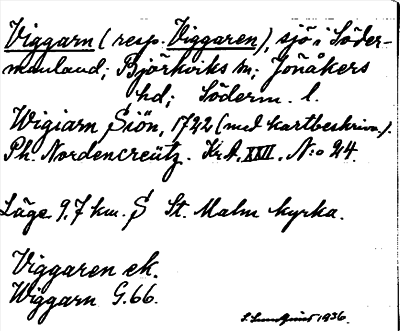 Viggarn (resp. Viggaren), sjö i Söder-
manland; Björkviks sn; Jönåkers
hd; Söderm. l.
Wigiarn Siön, 1722 (med kartbeskrivn.).
Ph. Nordencreütz. Kr.A. XXII. N:o 24.
Läge 9,7 km. S St. Malm kyrka.
Viggaren ek.
Wiggarn G.66.
1936.